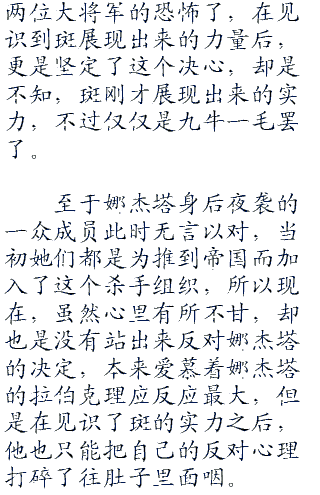 两位大将军的恐怖了，在见
识到斑展现出来的力量后，
更是坚定了这个决心，却是
不知，斑刚才展现出来的实
力，不过仅仅是九牛一毛罢
了。
至于娜杰塔身后夜袭的
一众成员此时无言以对，当
初她们都是为推到帝国而加
入了这个杀手组织，所以现
在，虽然心里有所不甘，却
也是没有站出来反对娜杰塔
的决定，本来爱慕着娜杰塔
的拉伯克理应反应最大，但
是在见识了斑的实力之后，
他也只能把自己的反对心理
打碎了往肚子里面咽。